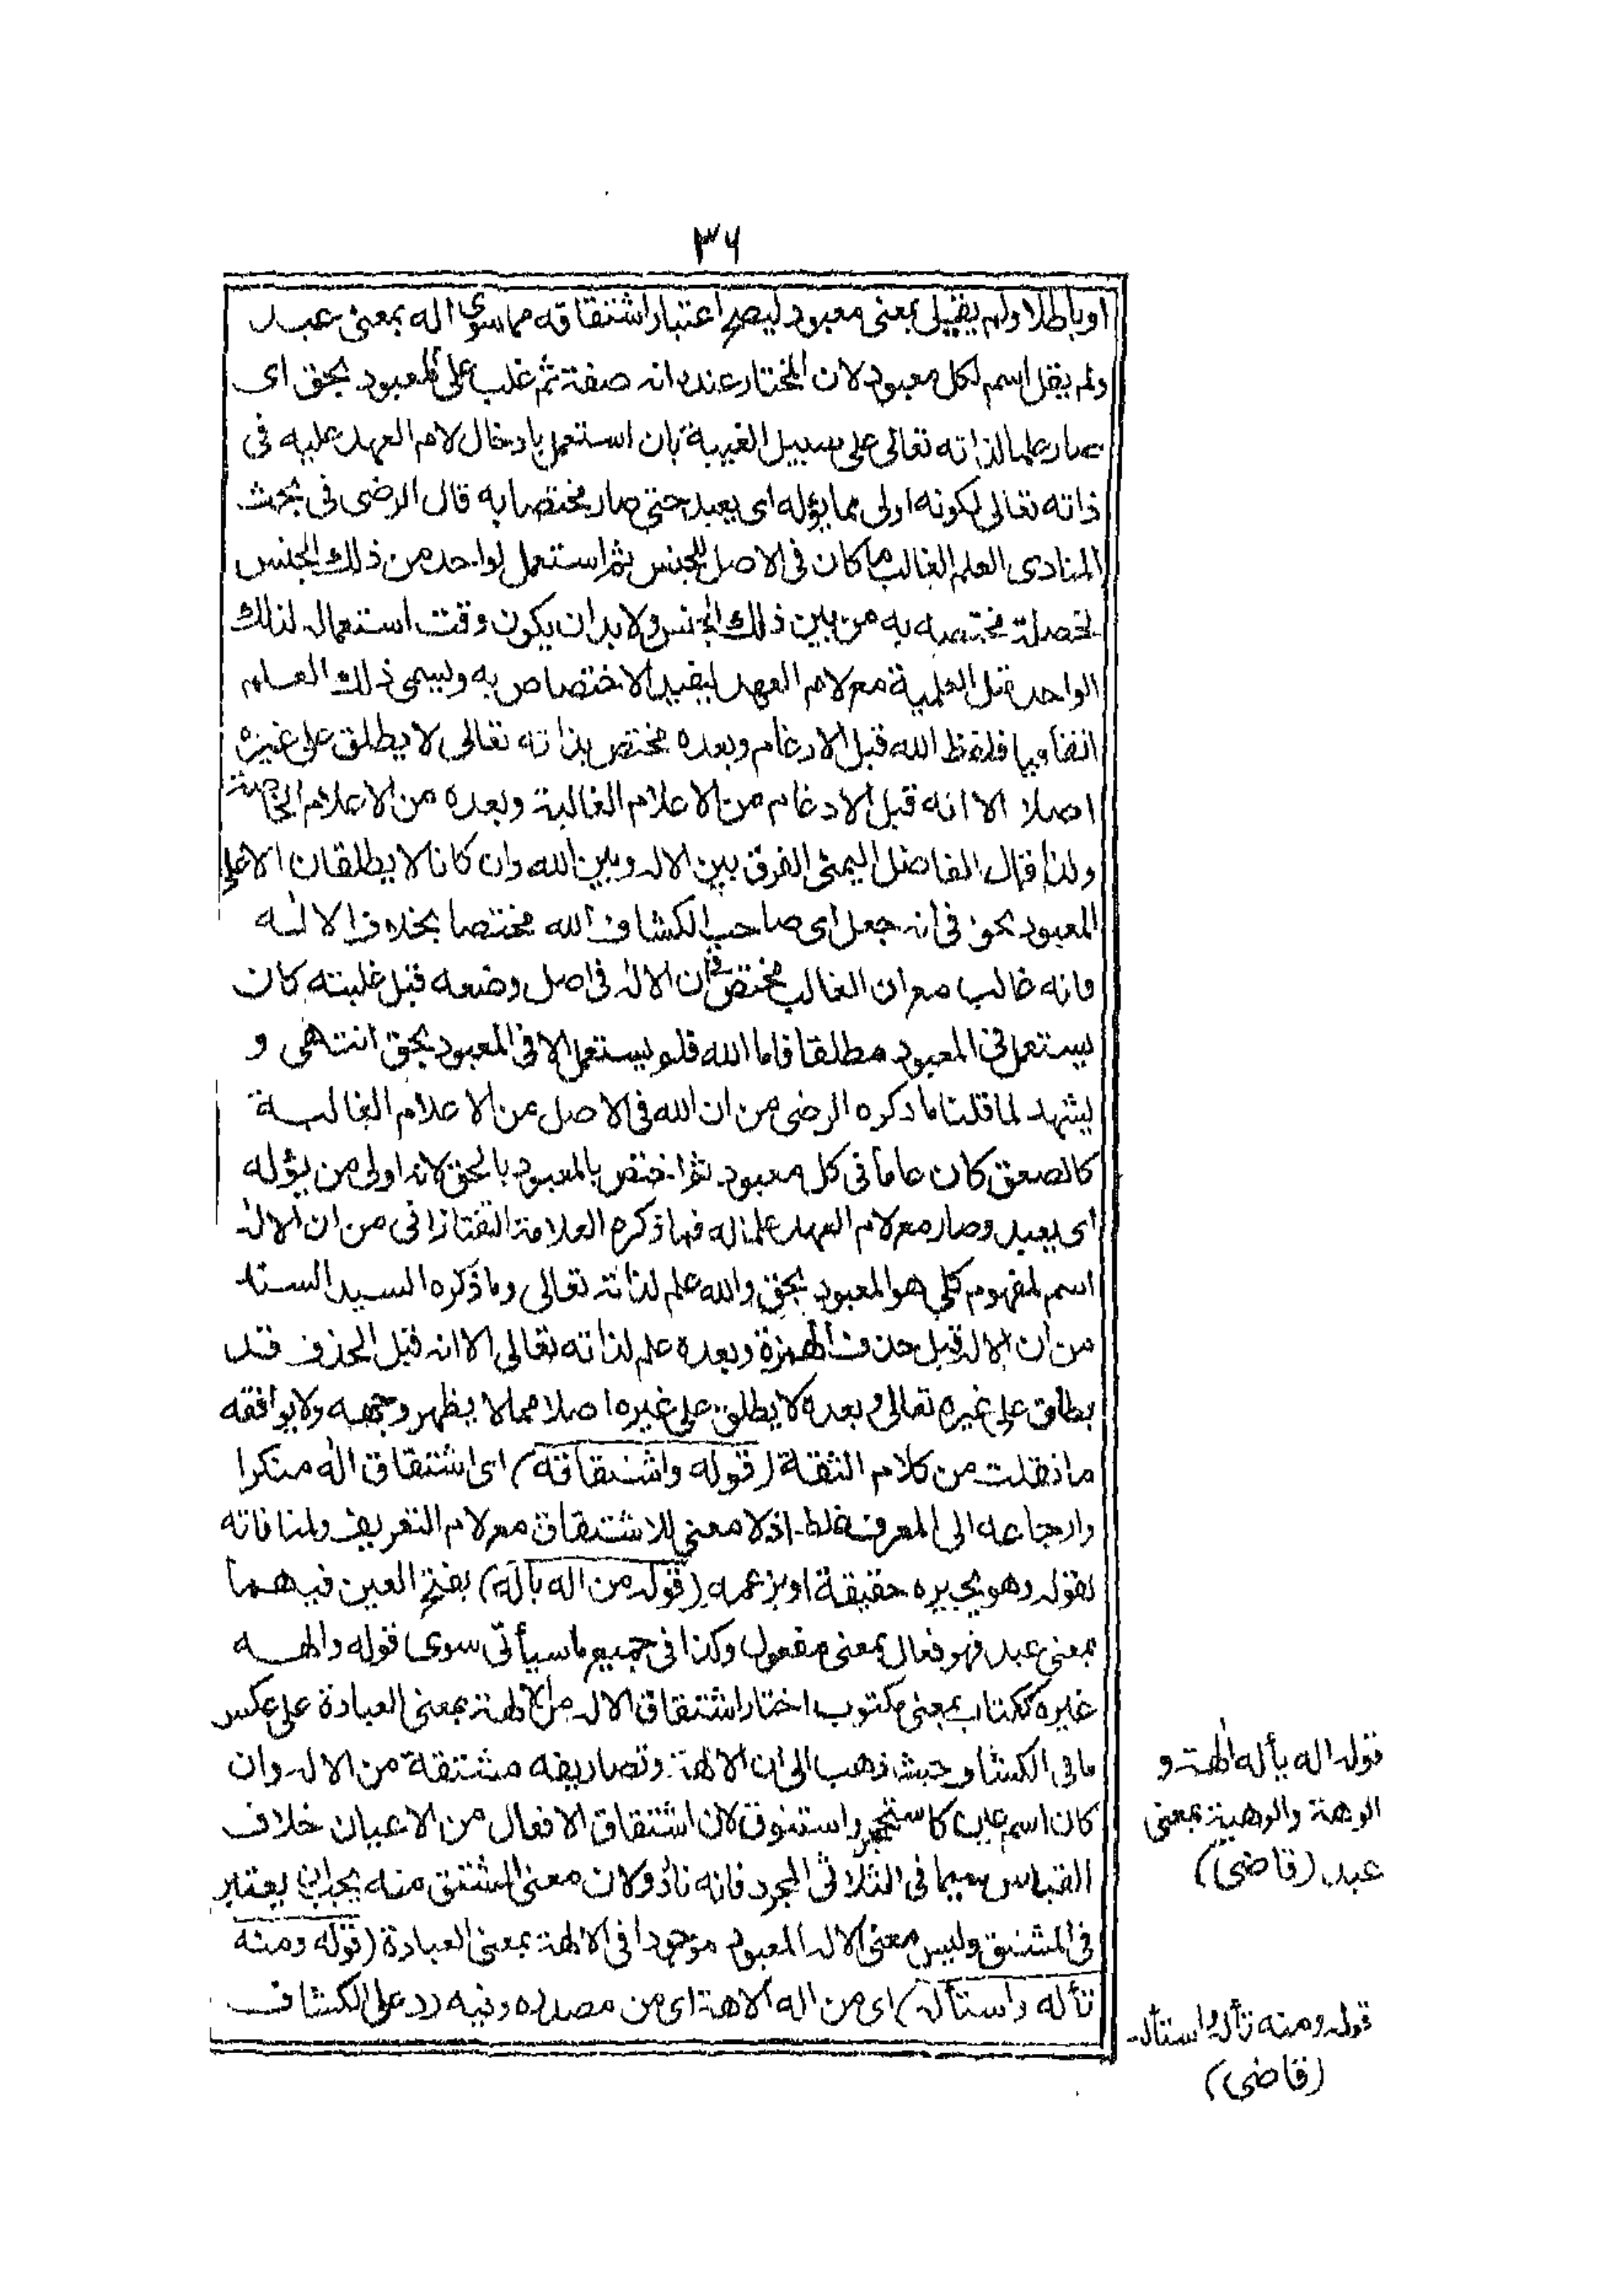 ٣٦
او باطلا ولم يقيل بمعنى معبود ليصح اعتبار اشتقاقه مما سوى اله بمعنى عبد
ولم يقل اسم لكل معبود لان المختار عنده انه صفة ثم غلب على المعبود بحق اى
صار علما لذاته تعالى على سبيل الغيبة بان استعمل بادخال لام العهد عليه فى
ذاته تعالى لكونه اولى مما يؤله اى يعبد حتى صار مختصا به قال الرضى فى بحث
المنادى العلم الغالب ما كان فى الاصل للجنس ثم استعمل لواحد من ذلك الجنس
لخصلة مختصه به من بين ذلك الجنس ولا بد ان يكون وقت استعماله لذلك
الواحد قبل العلمية مع لام العهد ليفيد الاختصاص به ويسمى ذلك العلم
اتفاقيا فلفظ الله قبل الادغام وبعده مختص بذاته تعالى لا يطلق على غيره
اصلا الا انه قبل الادغام من الاعلام الغالبة وبعده من الاعلام الخاصة
ولذا قال الفاضل اليمنى الفرق بين الاله وبين الله وان كانا لا يطلقان الا على
المعبود بحق فى انه جعل اى صاحب الكشاف الله مختصا بخلاف الاله
فانه غالب مع ان الغالب مختص فان الاله فى اصل وضعه قبل غلبته كان
يستعمل فى المعبود مطلقا فاما الله فلم يستعمل الا فى المعبود بحق انتهى و
يشهد لما قلنا ما ذكره الرضى من ان الله فى الاصل من الاعلام الغالبة
كالصعق كان عاما فى كل معبود ثم اختص بالمعبود بالحق لانه اولى من يؤله
اى يعبد وصار مع لام العهد علما له فما ذكره العلامة التفتازانى من ان الاله
اسم لمفهوم كلى هو المعبود بحق والله علم لذاته تعالى وما ذكره السيد السند
من ان الاله قبل حذف الهمزة وبعده علم لذاته تعالى الا انه قبل الحذف قد
يطلق على غيره تعالى وبعده لا يطلق على غيره اصلا مما لا يظهر وجهه ولا يوافقه
ما نقلت من كلام الثقلة (قوله واشتقاقه) اى اشتقاق اله منكرا
وارجاعه الى المعرف غلط اذ لا معنى للاشتقاق مع لام التعريف ولمنافاته
لقوله وهو يجيره حقيقة او بزعمه (قوله من اله يأله) بفتح العين فيهما
بمعنى عبد فهو فعال بمعنى مفعول وكذا فى جميع ما سيأتى سوى قوله والهه
غيره ككتاب بمعنى مكتوب اختار اشتقاق الاله من الالهة بمعنى العبادة على عكس
ما فى الكشاف حيث ذهب الى ان الالهة وتصاريفه مشتقة من الاله وان
كان اسم عين كاستحجر واستنوق لان اشتقاق الافعال من الاعيان خلاف
القياس سيما فى الثلاثى المجرد فانه نادر ولان معنى المشتق منه يجب ان يعتبر
فى المشتق وليس معنى الاله المعبود موجودا فى الالهة بمعنى العبادة (قوله ومنه
تأله واستأله) اى من اله الاهة اى من مصدره وفيه رد على الكشاف
قوله اله يأله الهة و
الوهة والوهية بمعنى
عبد (قاضى)
قوله ومنه تأله واستأله
(قاضى)